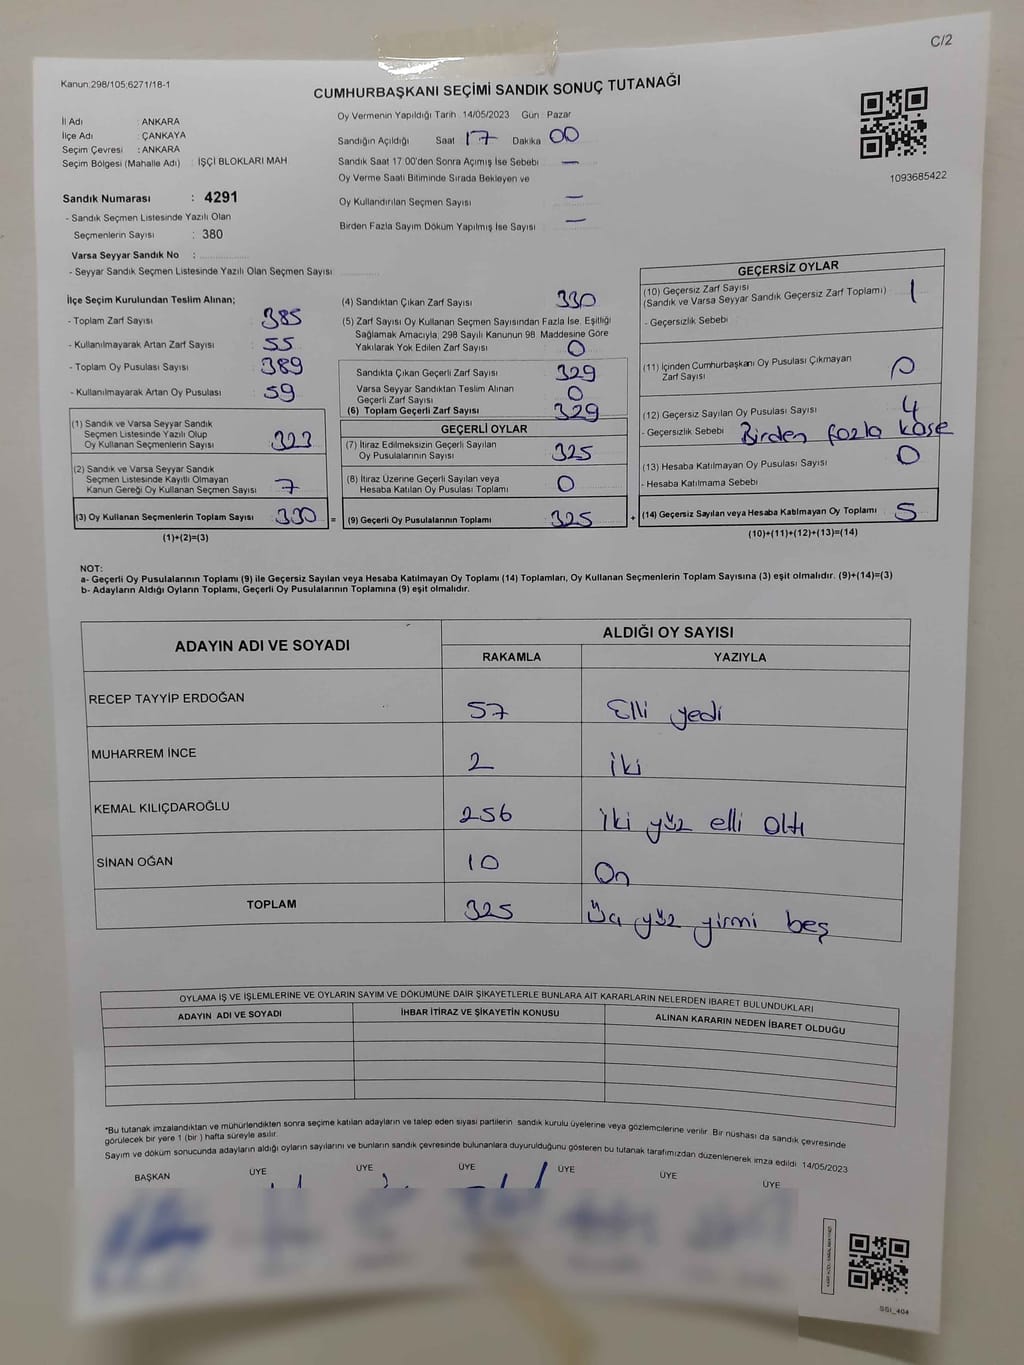 C/2
Kanun:298/105;6271/18-1
CUMHURBAŞKANI SEÇİMİ SANDIK SONUÇ TUTANAĞI
İl Adı : ANKARA
İlçe Adı : ÇANKAYA
Seçim Çevresi : ANKARA
Seçim Bölgesi (Mahalle Adı) : İŞÇİ BLOKLARI MAH
Sandık Numarası : 4291
- Sandık Seçmen Listesinde Yazılı Olan
Seçmenlerin Sayısı : 380
Varsa Seyyar Sandık No :
- Seyyar Sandık Seçmen Listesinde Yazılı Olan Seçmen Sayısı
Oy Vermenin Yapıldığı Tarih : 14/05/2023 Gün : Pazar
Sandığın Açıldığı Saat 17 Dakika 00
Sandık Saat 17:00'den Sonra Açımış İse Sebebi —
Oy Verme Saati Bitiminde Sırada Bekleyen ve
Oy Kullandırılan Seçmen Sayısı —
Birden Fazla Sayım Döküm Yapılmış İse Sayısı —
1093685422
İlçe Seçim Kurulundan Teslim Alınan;
- Toplam Zarf Sayısı 385
- Kullanılmayarak Artan Zarf Sayısı 55
- Toplam Oy Pusulası Sayısı 389
- Kullanılmayarak Artan Oy Pusulası 59
(1) Sandık ve Varsa Seyyar Sandık
Seçmen Listesinde Yazılı Olup
Oy Kullanan Seçmenlerin Sayısı 323
(2) Sandık ve Varsa Seyyar Sandık
Seçmen Listesinde Kayıtlı Olmayan
Kanun Gereği Oy Kullanan Seçmen Sayısı 7
(3) Oy Kullanan Seçmenlerin Toplam Sayısı 330 =
(1)+(2)=(3)
(4) Sandıktan Çıkan Zarf Sayısı 330
(5) Zarf Sayısı Oy Kullanan Seçmen Sayısından Fazla İse, Eşitliği
Sağlamak Amacıyla, 298 Sayılı Kanunun 98. Maddesine Göre
Yakılarak Yok Edilen Zarf Sayısı 0
Sandıkta Çıkan Geçerli Zarf Sayısı 329
Varsa Seyyar Sandıktan Teslim Alınan
Geçerli Zarf Sayısı 0
(6) Toplam Geçerli Zarf Sayısı 329
GEÇERLİ OYLAR
(7) İtiraz Edilmeksizin Geçerli Sayılan
Oy Pusulalarının Sayısı 325
(8) İtiraz Üzerine Geçerli Sayılan veya
Hesaba Katılan Oy Pusulası Toplamı 0
(9) Geçerli Oy Pusulalarının Toplamı 325 +
GEÇERSİZ OYLAR
(10) Geçersiz Zarf Sayısı
(Sandık ve Varsa Seyyar Sandık Geçersiz Zarf Toplamı) 1
- Geçersizlik Sebebi
(11) İçinden Cumhurbaşkanı Oy Pusulası Çıkmayan
Zarf Sayısı 0
(12) Geçersiz Sayılan Oy Pusulası Sayısı 4
- Geçersizlik Sebebi Birden fazla kaşe
(13) Hesaba Katılmayan Oy Pusulası Sayısı 0
- Hesaba Katılmama Sebebi
(14) Geçersiz Sayılan veya Hesaba Katılmayan Oy Toplamı 5
(10)+(11)+(12)+(13)=(14)
NOT:
a- Geçerli Oy Pusulalarının Toplamı (9) ile Geçersiz Sayılan veya Hesaba Katılmayan Oy Toplamı (14) Toplamları, Oy Kullanan Seçmenlerin Toplam Sayısına (3) eşit olmalıdır. (9)+(14)=(3)
b- Adayların Aldığı Oyların Toplamı, Geçerli Oy Pusulalarının Toplamına (9) eşit olmalıdır.
ADAYIN ADI VE SOYADI ALDIĞI OY SAYISI
RAKAMLA YAZIYLA
RECEP TAYYİP ERDOĞAN 57 Elli yedi
MUHARREM İNCE 2 iki
KEMAL KILIÇDAROĞLU 256 iki yüz elli altı
SİNAN OĞAN 10 On
TOPLAM 325 Üç yüz yirmi beş
OYLAMA İŞ VE İŞLEMLERİNE VE OYLARIN SAYIM VE DÖKÜMÜNE DAİR ŞİKAYETLERLE BUNLARA AİT KARARLARIN NELERDEN İBARET BULUNDUKLARI
ADAYIN ADI VE SOYADI İHBAR İTİRAZ VE ŞİKAYETİN KONUSU ALINAN KARARIN NEDEN İBARET OLDUĞU
*Bu tutanak imzalandıktan ve mühürlendikten sonra seçime katılan adayların ve talep eden siyasi partilerin sandık kurulu üyelerine veya gözlemcilerine verilir. Bir nüshası da sandık çevresinde
görülecek bir yere 1 (bir) hafta süreyle asılır.
Sayım ve döküm sonucunda adayların aldığı oyların sayılarını ve bunların sandık çevresinde bulunanlara duyurulduğunu gösteren bu tutanak tarafımızdan düzenlenerek imza edildi. 14/05/2023
BAŞKAN ÜYE ÜYE ÜYE ÜYE ÜYE ÜYE
SSI_404